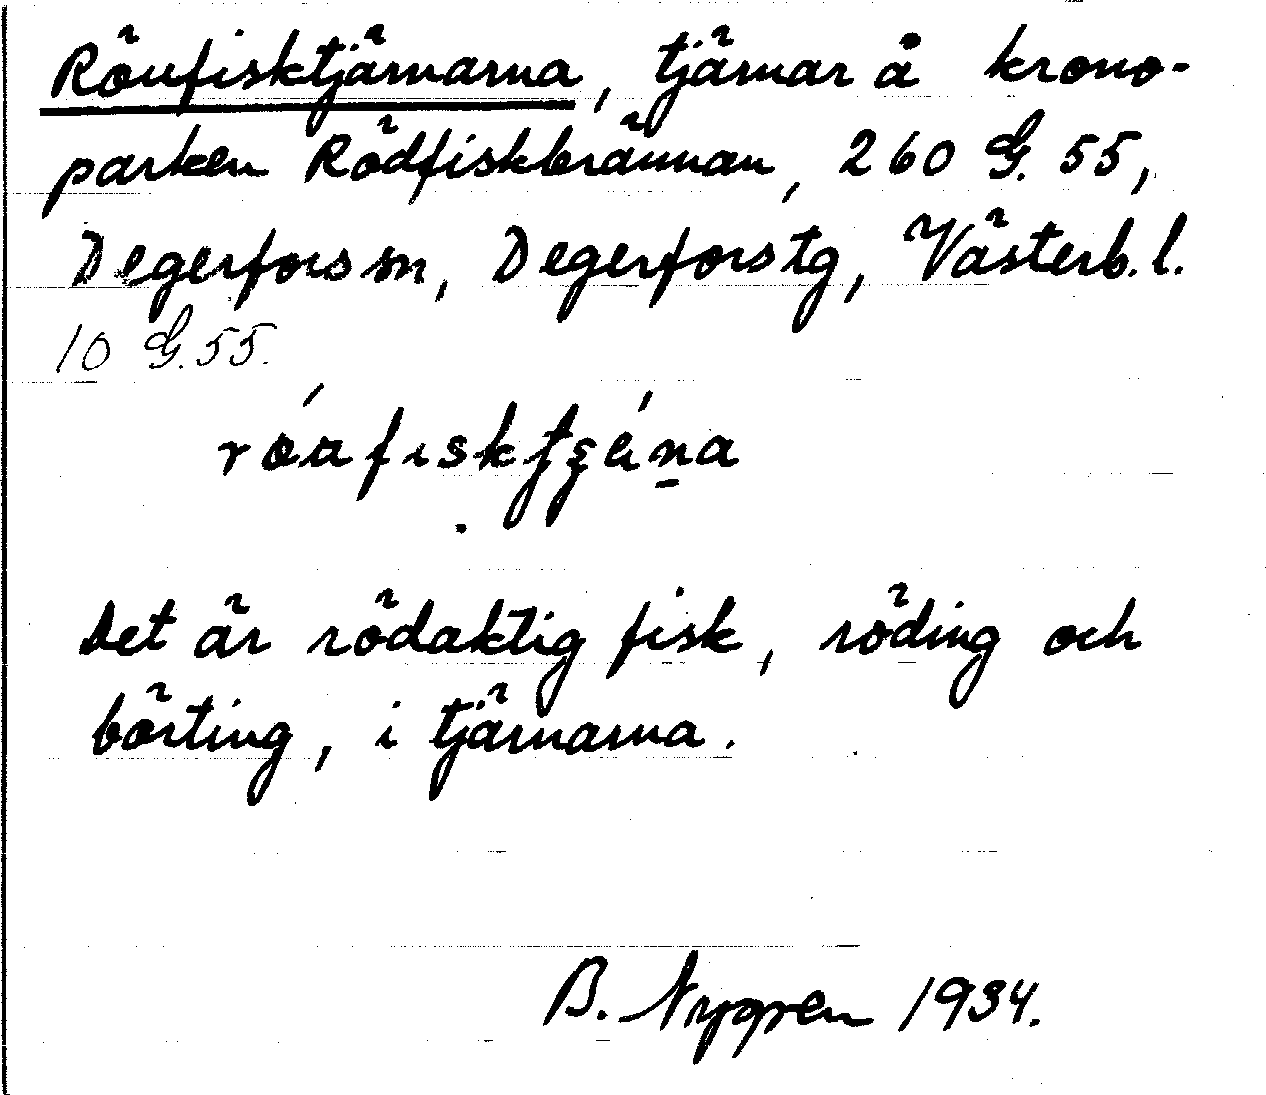 Röufisktjärnarna, tjärnar å krono-
parken Rödfiskbrännan, 260 G. 55,
Degerfors sn, Degerfors tg, Västerb. l.
10 G. 55.
Det är rödaktig fisk, röding och
börting, i tjärnarna.
B. Nygren 1934.